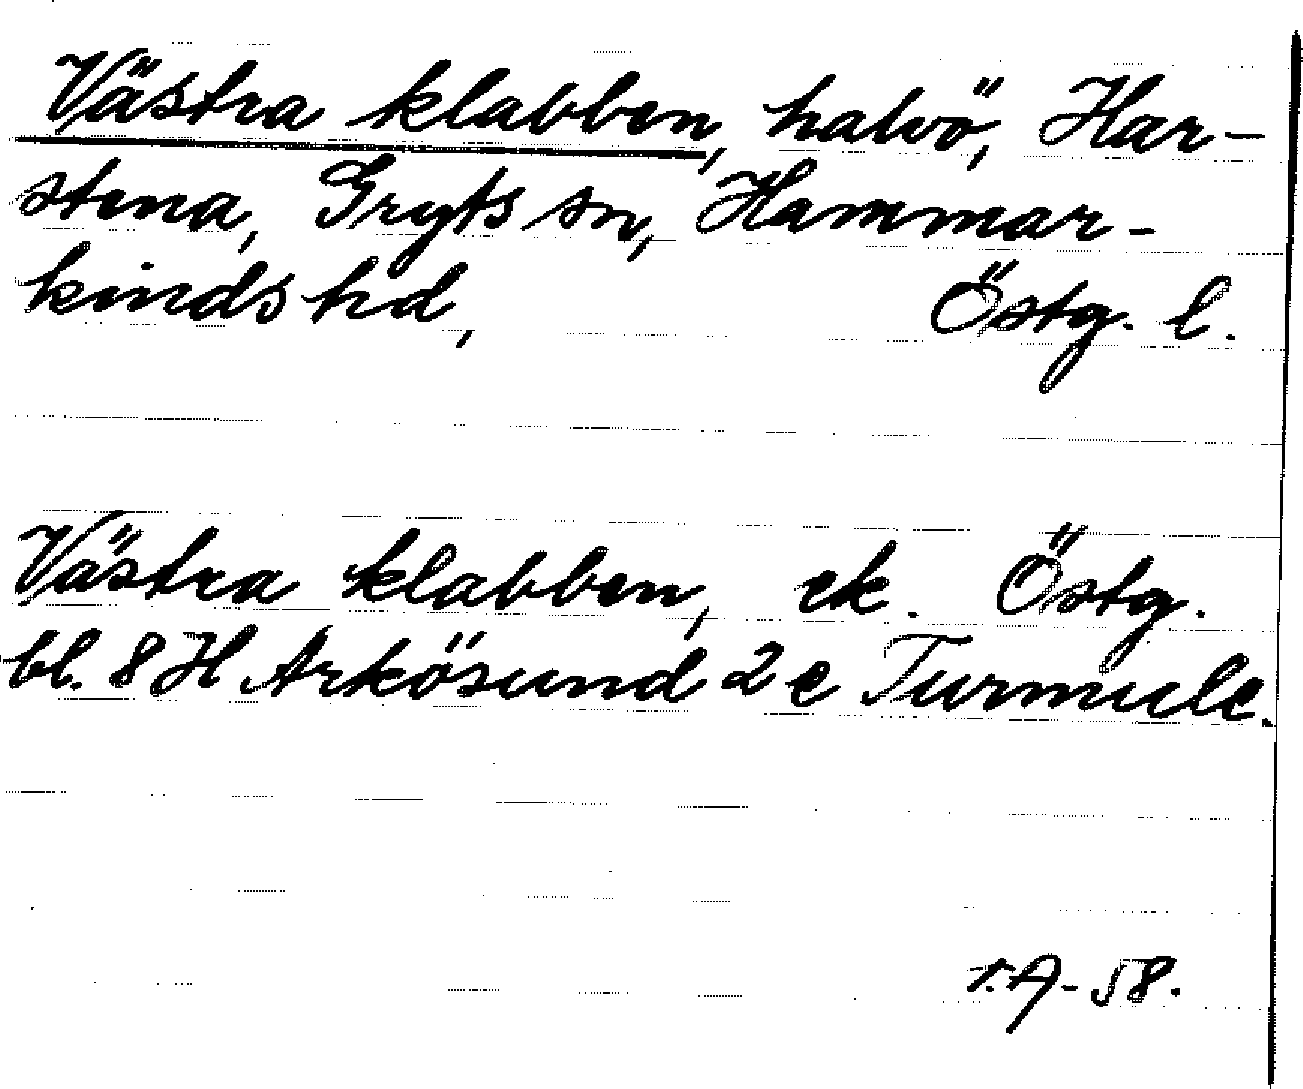 Västra klabben, halvö, Har-
stena, Gryts sn, Hammar-
kinds hd, Östg. l.
Västra klabben, ek. Östg.
bl. 8 H Arkösund 2 e Turmulc.
r.A-58.